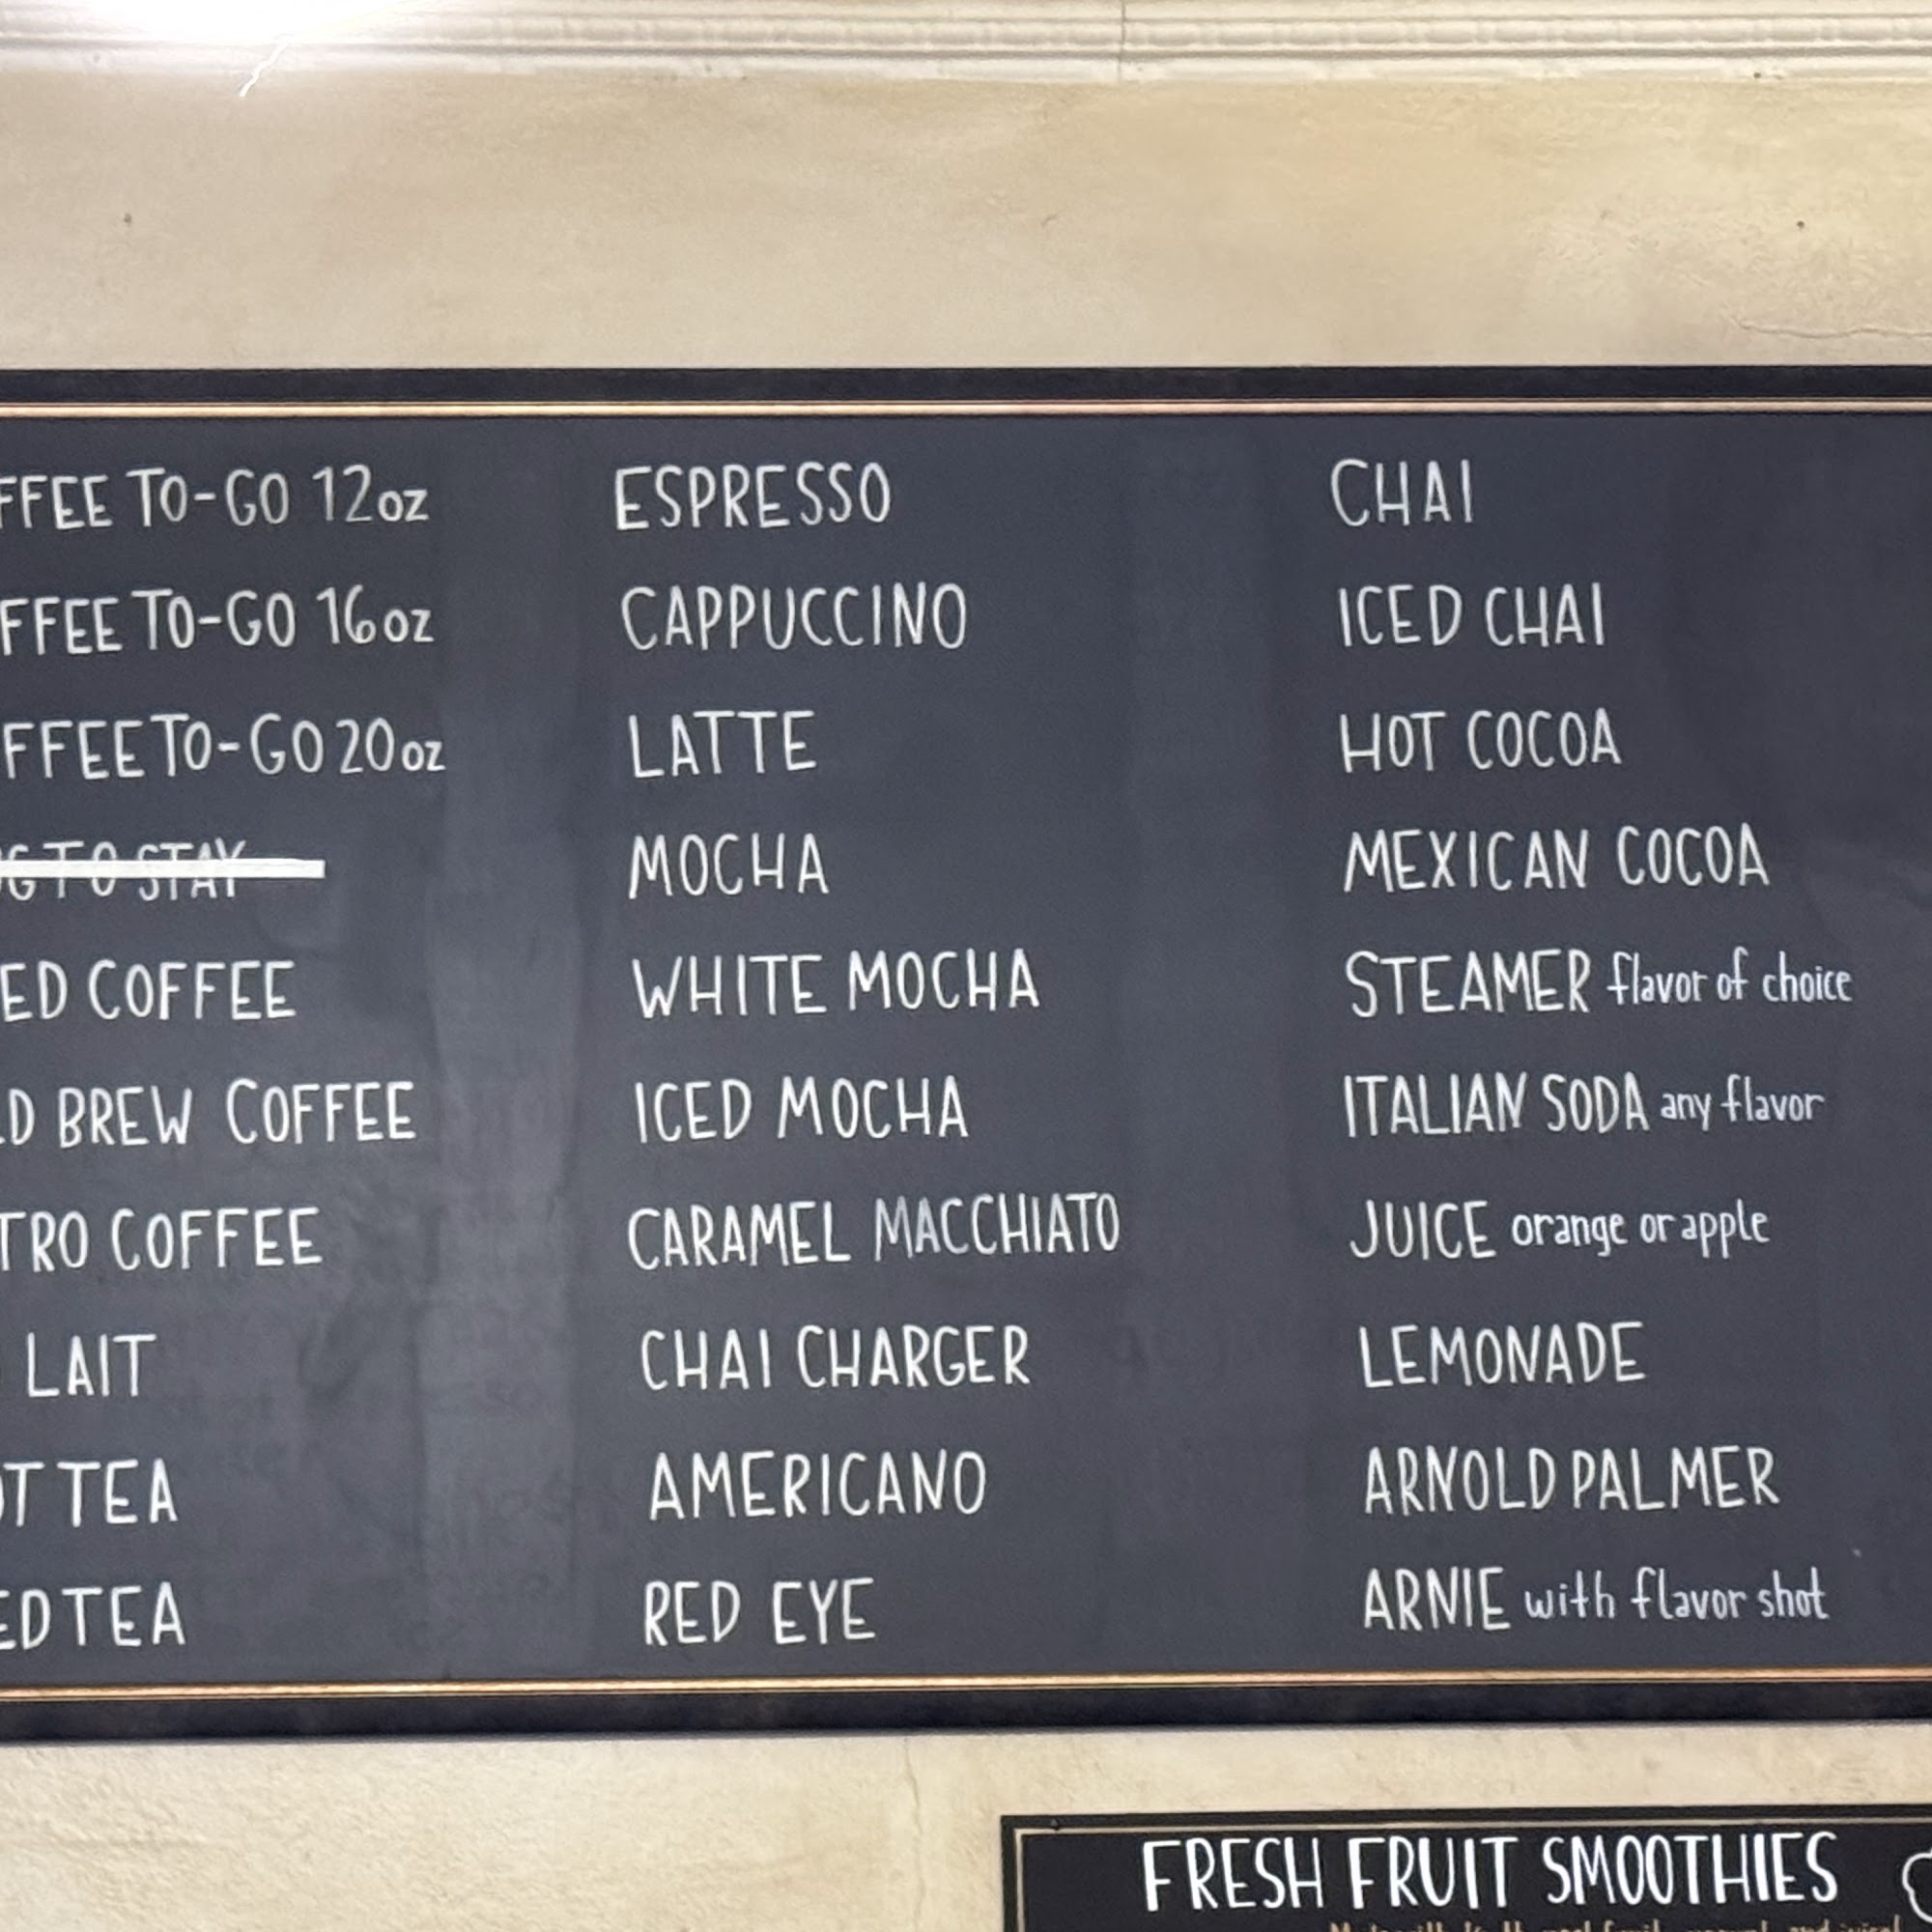 FFEE TO-GO 12oz
FFEE TO-GO 16oz
FFEE TO-GO 20oz
G TO STAY
ED COFFEE
D BREW COFFEE
TRO COFFEE
LAIT
OT TEA
ED TEA
ESPRESSO
CAPPUCCINO
LATTE
MOCHA
WHITE MOCHA
ICED MOCHA
CARAMEL MACCHIATO
CHAI CHARGER
AMERICANO
RED EYE
CHAI
ICED CHAI
HOT COCOA
MEXICAN COCOA
STEAMER flavor of choice
ITALIAN SODA any flavor
JUICE orange or apple
LEMONADE
ARNOLD PALMER
ARNIE with flavor shot
FRESH FRUIT SMOOTHIES